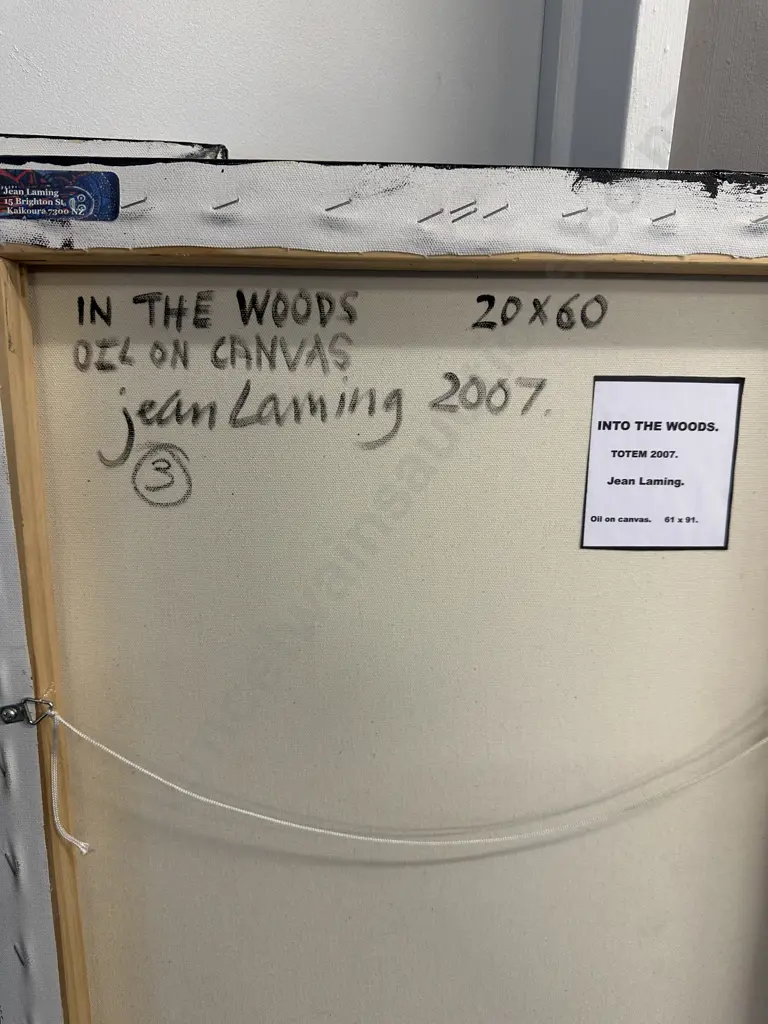 Jean Laming
15 Brighton St.
Kaikoura 7300 NZ
IN THE WOODS 20X60
OIL ON CANVAS
jean Laming 2007.
3
INTO THE WOODS.
TOTEM 2007.
Jean Laming.
Oil on canvas. 61 x 91.